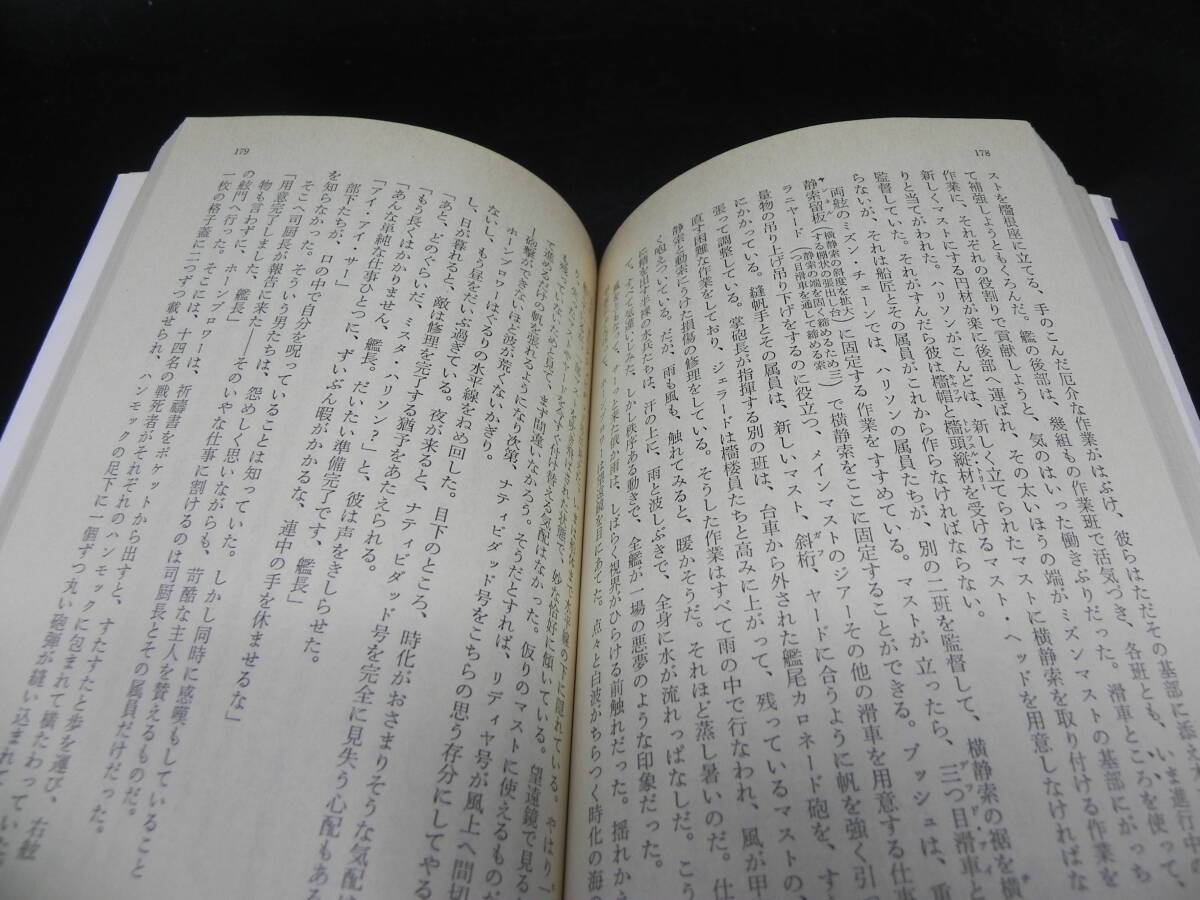 178
ストを檣根座に立てる、手のこんだ厄介な作業がはぶけ、彼らはただその基部に添え
て補強しようともくろんだ。艦の後部は、幾組もの作業班で活気づき、各班とも、いま進行中
作業に、それぞれの役割りで貢献しようと、気のはいった働きぶりだった。滑車ところを使って、
新しくマストにする円材が楽に後部へ運ばれ、その太いほうの端がミズンマストの基部にがっち
りと当てがわれた。ハリソンがこんどは、新しく立てられたマストに横静索を取り付ける作業を
監督していた。それがすんだら彼は檣帽と檣頭縦材を受けるマスト・ヘッドを用意しなければな
らないが、それは船匠とその属員がこれから作らなければならない。
両舷のミズン・チェーンでは、ハリソンの属員たちが、別の二班を監督して、横静索の裾を横
静索留板(横静索の斜度を拡大する棚状の張出し台)に固定する作業をすすめている。マストが立ったら、三つ目滑車と
ラニヤード(静索の端を固く締めるため三つ目滑車を通して締める索)で横静索をここに固定することができる。ブッシュは、重
量物の吊り上げ吊り下げをするのに役立つ、メインマストのジアーその他の滑車を用意する仕事
にかかっている。縫帆手とその属員は、新しいマスト、斜桁、ヤードに合うように帆を強く引
張って調整している。掌砲長が指揮する別の班は、台車から外された艦尾カロネード砲を、
直す困難な作業をしており、ジェラードは檣楼員たちと高みに上がって、残っているマストの、
静索と動索にうけた損傷の修理をしている。そうした作業はすべて雨の中で行なわれ、風が甲
く咆えついている。だが、雨も風も、触れてみると、暖かそうだ。それほど蒸し暑いのだ。仕
水兵たちは、汗の上に、雨と波しぶきで、全身に水が流れっぱなしだ。こう
しかし秩序ある動きで、全艦が一場の悪夢のような印象だった。
しばらく視界がひらける前触れだった。揺れか
望遠鏡を目にあてた。点々と白波がちらつく時化の海の
179
水平線の下に隠れている。やはり
ヤードを今すぐ付け替える気配はなかった。妙な恰好に傾いている。望遠鏡で見る
も残っていないためと見て、まず間違いなかろう。仮りのマストに使えるもの
て進めるだけの帆を張れるようになり次第、ナティビダッド号が風上へ間切
ー砲撃ができないほど波が荒くないかぎり。
ホーンブロワーはぐるりの水平線をねめ回した。目下のところ、時化がおさまりそうな気配は
ないし、もう昼をだいぶ過ぎている。夜が来ると、ナティビダッド号を完全に見失う心配もある
し、日が暮れると、敵は修理を完了する猶予をあたえられる。
「あと、どのぐらいだ、ミスタ・ハリソン?」と、彼は声をきしらせた。
「もう長くはかかりません、艦長。だいたい準備完了です、艦長」
「あんな単純な仕事ひとつに、ずいぶん暇がかかるな、連中の手を休ませるな」
「アイ・アイ・サー」
部下たちが、口の中で自分を呪っていることは知っていた。しかし同時に感嘆もしていること
を知らなかった。そういう男たちは、怨めしく思いながらも、苛酷な主人を賛えるものだ。
そこへ司厨長が報告に来た――そのいやな仕事に割けるのは司厨長とその属員だけだった。
「用意完了しました、艦長」
物も言わずに、ホーンブロワーは、祈禱書をポケットから出すと、すたすたと歩を運び、右舷
の舷門へ行った。そこには、十四名の戦死者がそれぞれのハンモックに包まれて横たわっていた
一枚の格子蓋に二つずつ載せられ、ハンモックの足下に一個ずつ丸い砲弾が縫い込まれていた